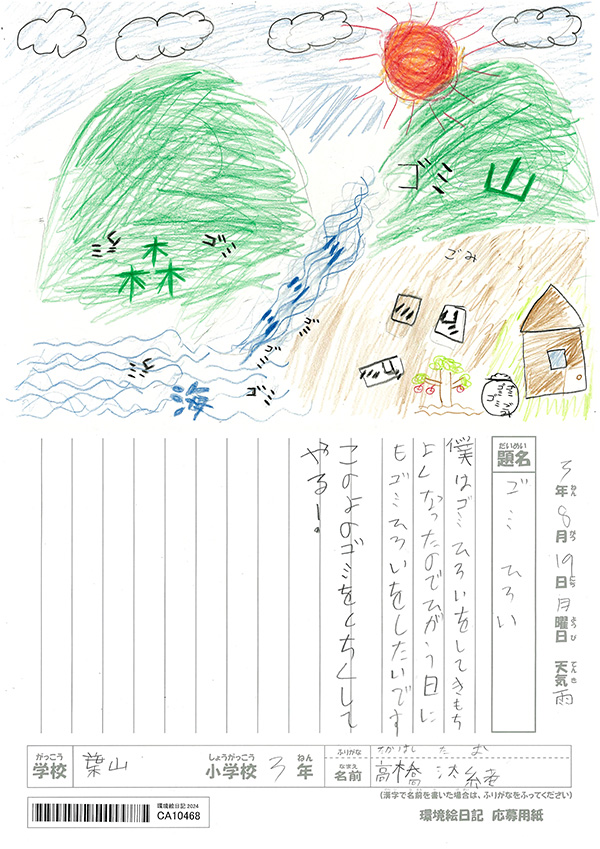 ゴミ
山
ゴミ
ゴミ
木
木木
ごみ
ゴミ
ゴミ
ゴミ
ゴミ
海
だいめい
題名
ゴミひろい
3年8月19日月曜日 天気雨
ねん
がつ
にち
ようび
てんき
僕はゴミひろいをしてきもち
よくなったのでひがう日に
もゴミひろいをしたいです
このよのゴミをくちくして
やる!。
がっこう
学校
葉山
しょうがっこう
小学校
3
ねん
年
ふりがな
なまえ
名前
高橋
(漢字で名前を書いた場合は、ふりがなをふってください)
環境絵日記2024
CA10468
環境絵日記 応募用紙